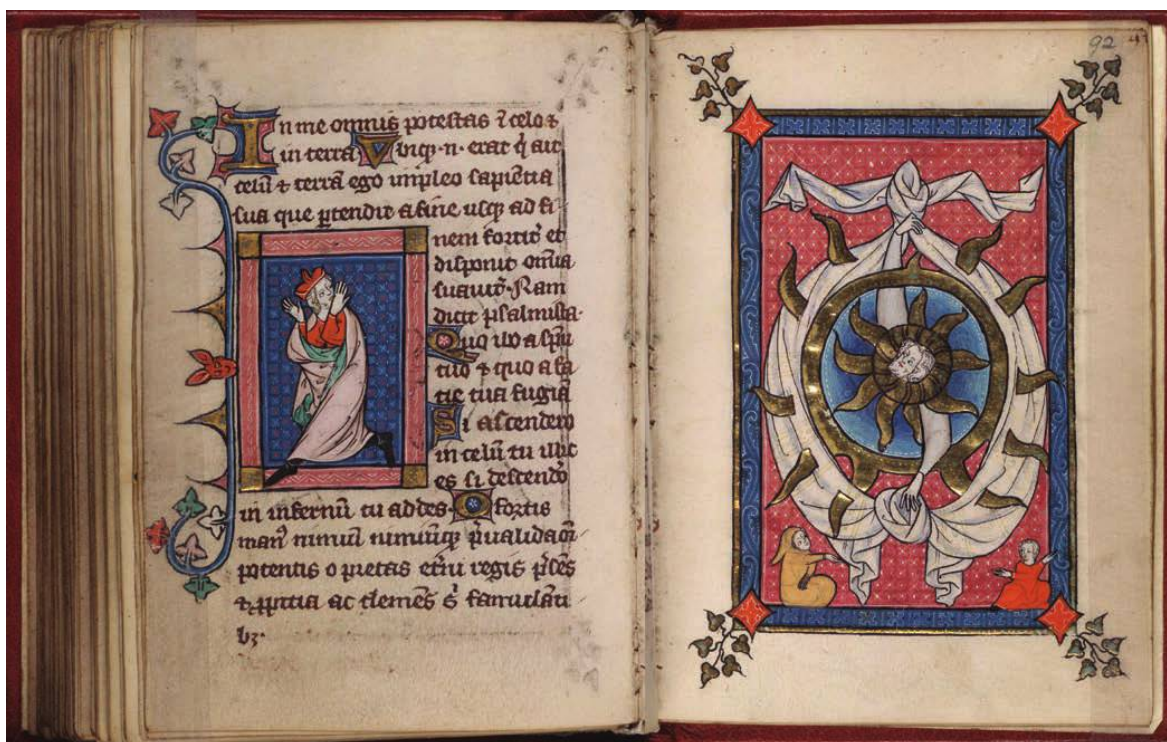 In me omnis potestas ⁊ celo ⁊
in terra. Vbiqȝ .n. erat q̇ ait
celū ⁊ terrā ego impleo sapiētia
sua que ꝑtendit a fine usqȝ ad fi
nem fortit̉ et
disponit omīa
suauit̉. Nam
dicit psalmista.
Quo ibo a spū
tuo ⁊ quo a fa
cie tua fugiā
Si ascendero
in celū tu illic
es si descendo̓
in infernū tu addes. O fortis
man᷒ nimiū nimiūqȝ p̄ualida om̄i
potentis o pietas et̓ni regis
ac clemēs famulāti
bȝ.
92